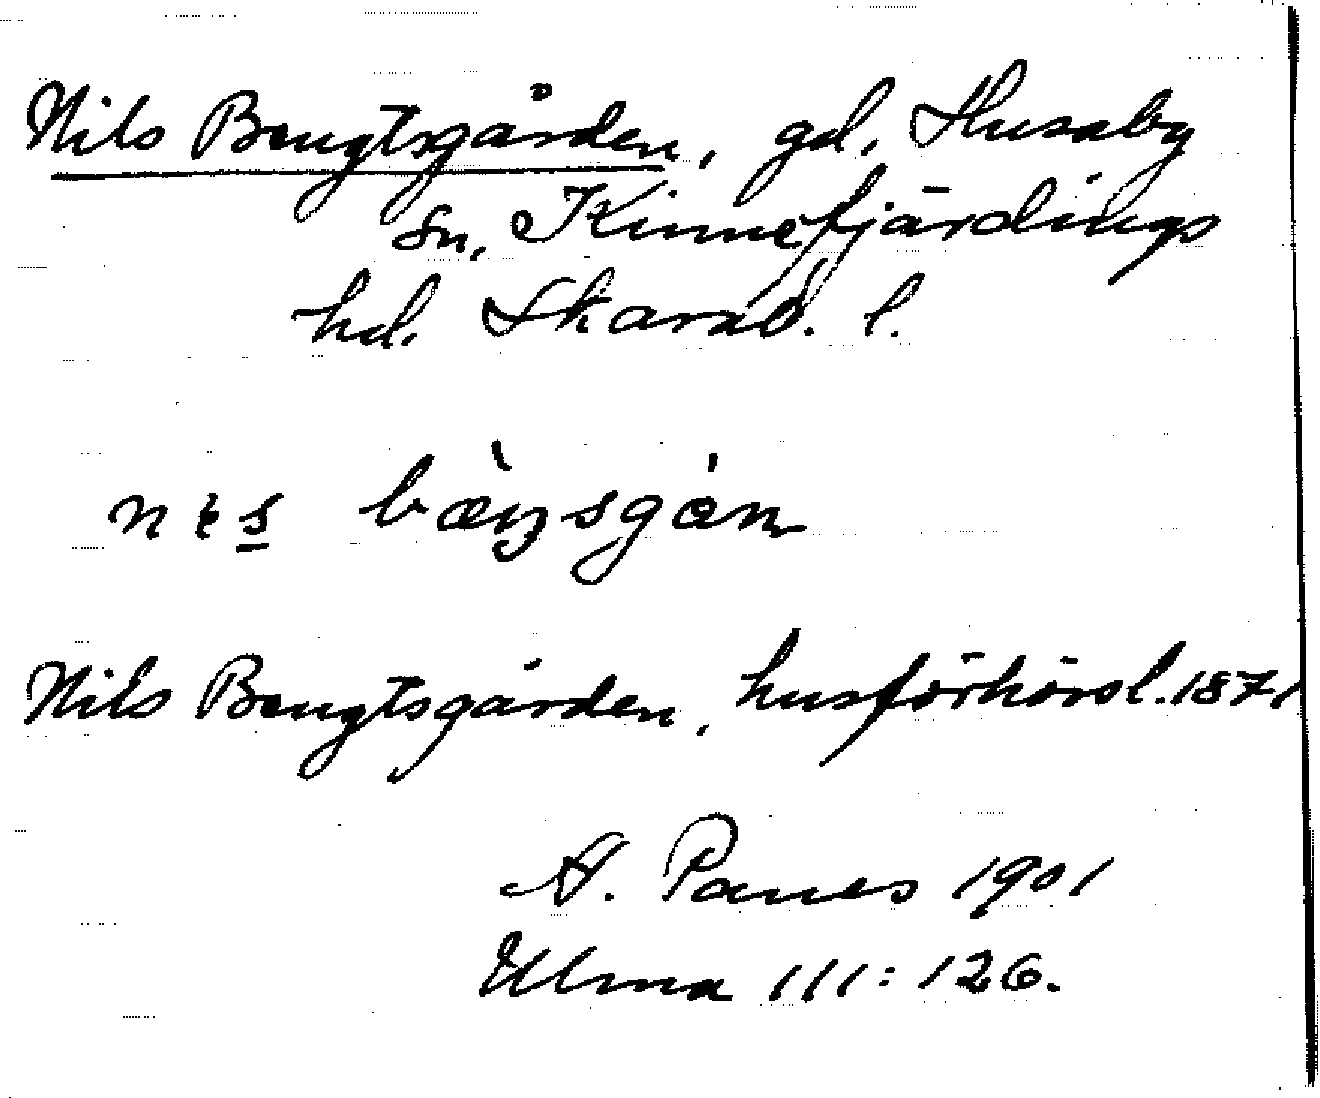 Nils Bengtsgården, gd. Husaby
sn, Kinnefjärdings
hd. Skarab. l.
bæŋsgån
Nils Bengtsgården, husförhörsl. 1871
A. Panes 1901
Ulma 111:126.